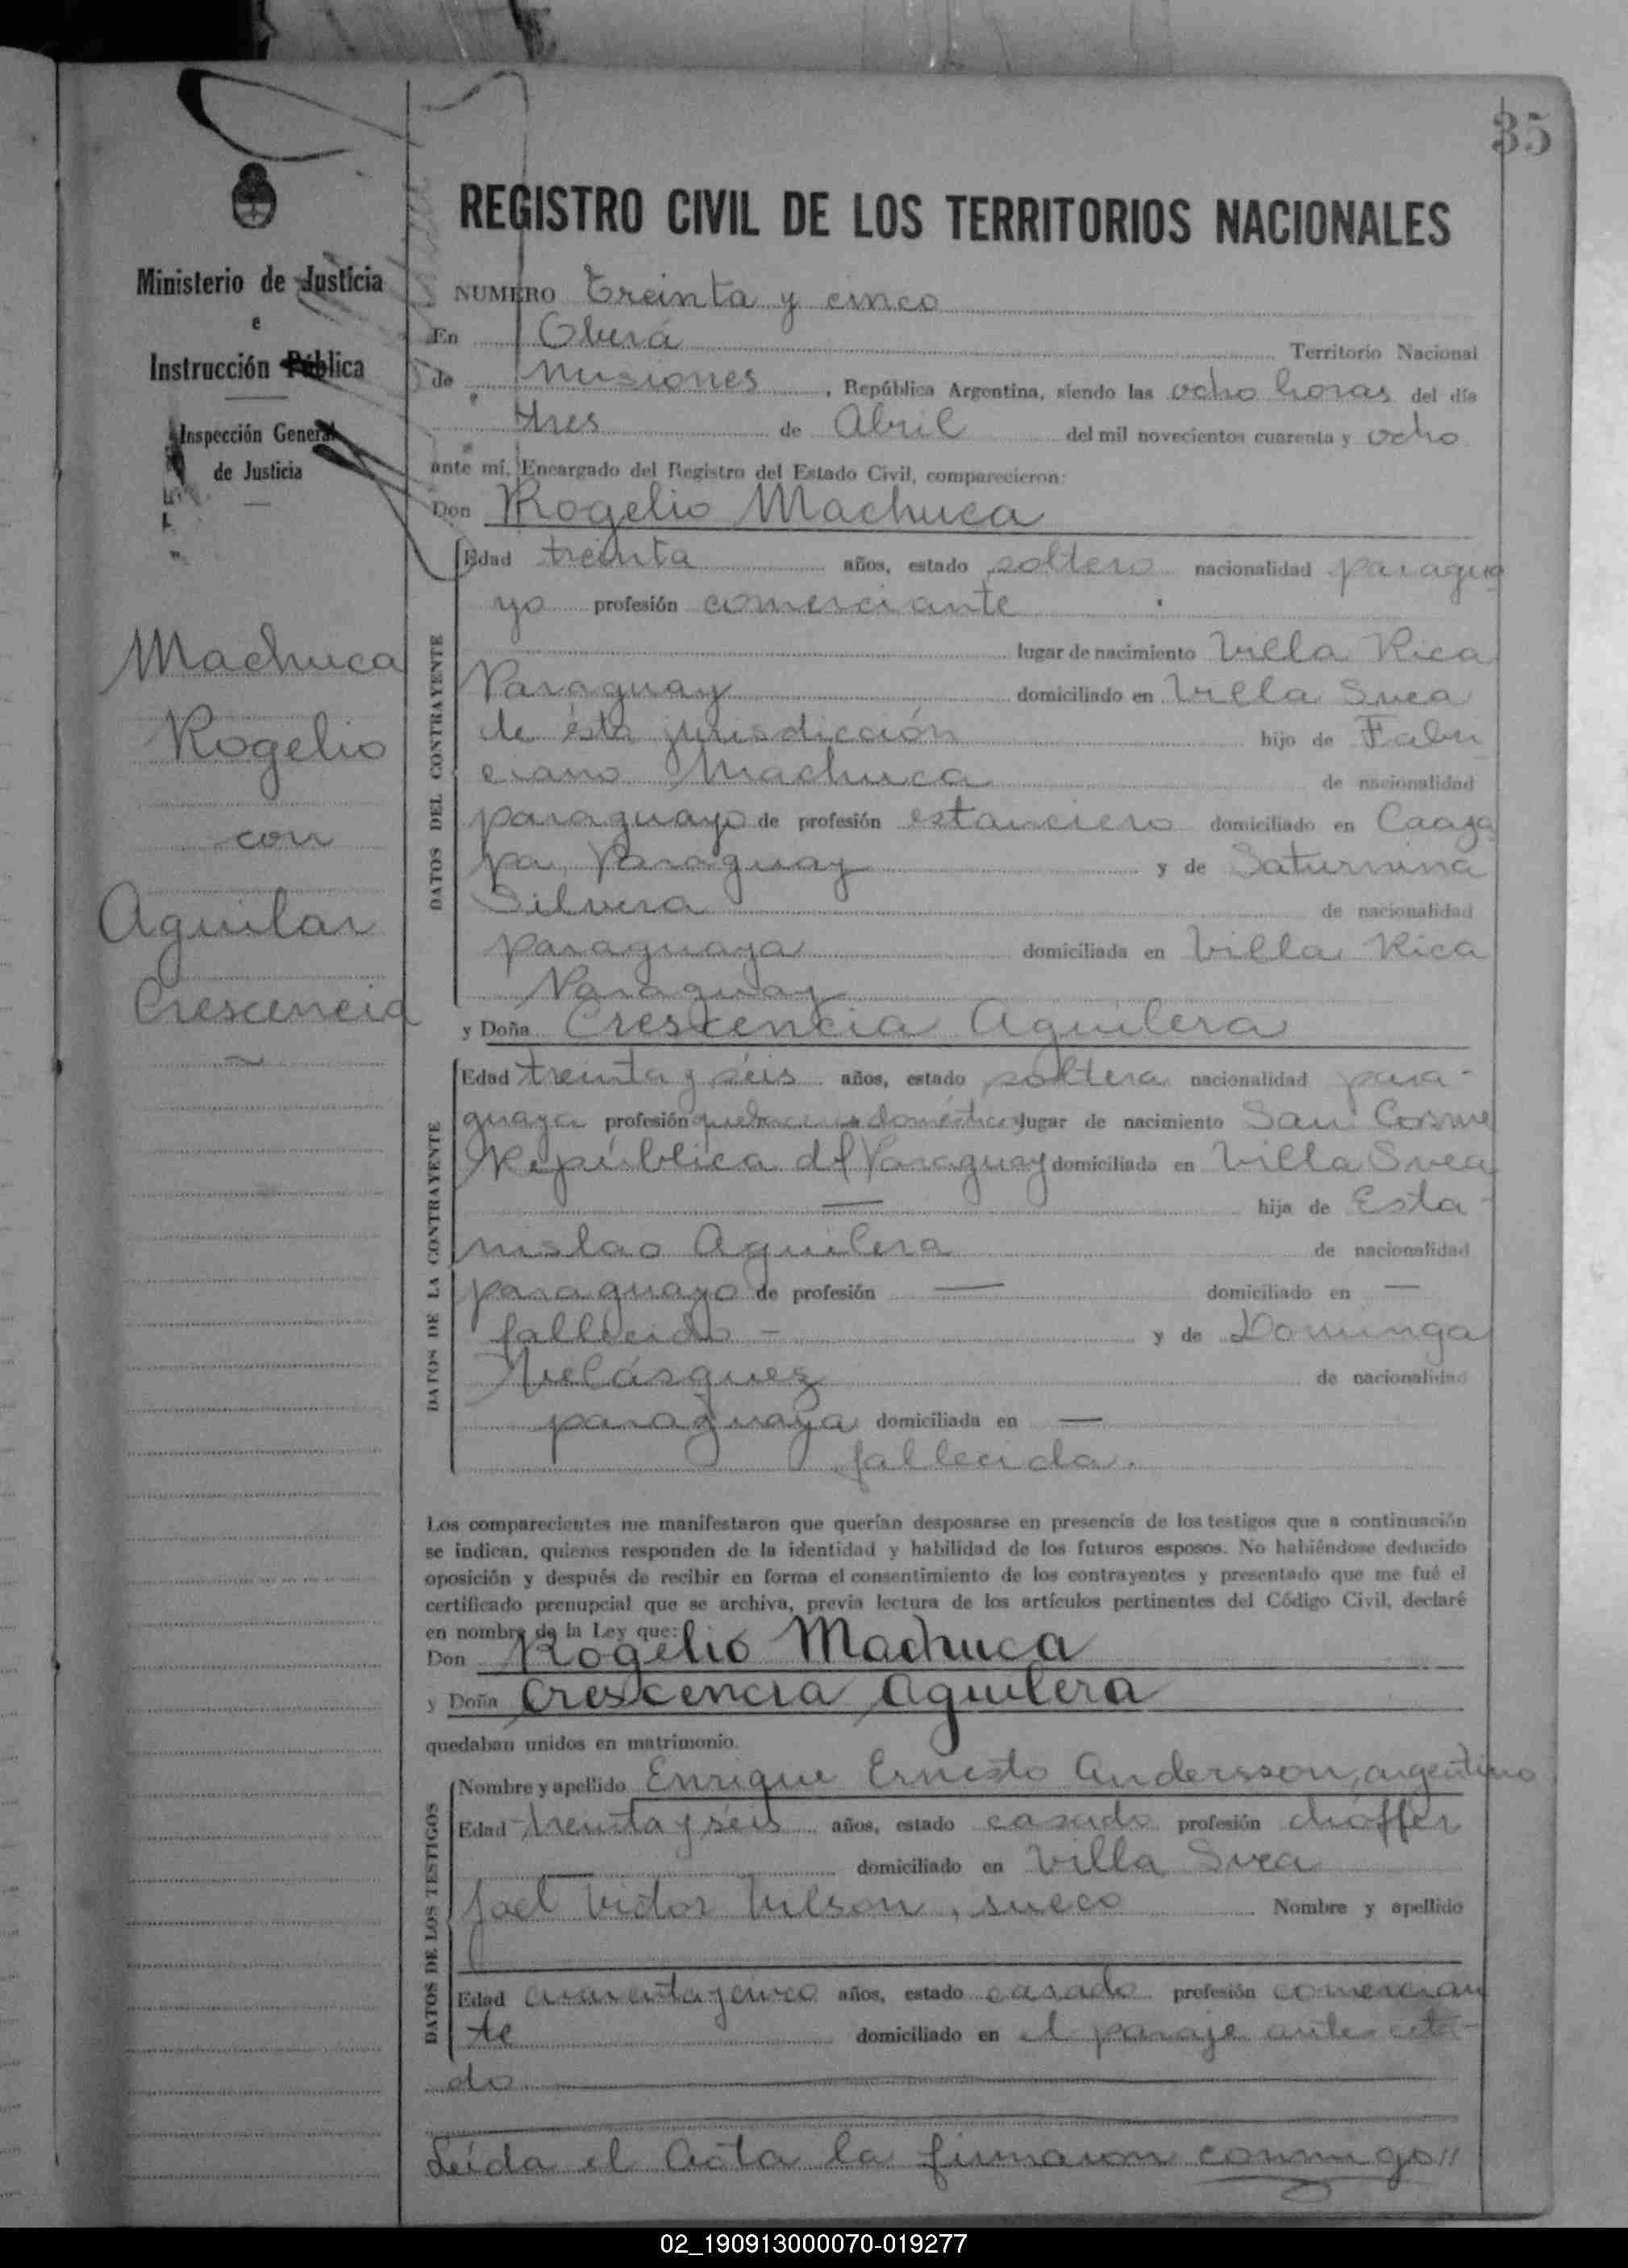 35
Ministerio de Justicia
e
Instrucción Pública
Inspección General
de Justicia
Machuca
Rogelio
con
Aguilar
Crescencia
REGISTRO CIVIL DE LOS TERRITORIOS NACIONALES
NUMERO Treinta y cinco
En Oberá Territorio Nacional
de Misiones, República Argentina, siendo las ocho horas del día
tres de Abril del mil novecientos cuarenta y ocho
ante mí, Encargado del Registro del Estado Civil, comparecieron:
Don Rogelio Machuca
DATOS DEL CONTRAYENTE
Edad treinta años, estado soltero nacionalidad paragua
yo profesión comerciante
lugar de nacimiento Villa Rica
Paraguay domiciliado en Villa Svea
de ésta jurisdicción hijo de Fabri
ciano Machuca de nacionalidad
paraguayo de profesión estanciero domiciliado en Caaza
pa, Paraguay y de Saturnina
Silvera de nacionalidad
paraguaya domiciliada en Villa Rica
Paraguay
y Doña Crescencia Aguilera
DATOS DE LA CONTRAYENTE
Edad treinta y séis años, estado soltera nacionalidad para-
guaya profesión quehaceres domésticos lugar de nacimiento San Cosme
República del Paraguay domiciliada en Villa Svea
— hija de Esta-
nislao Aguilera de nacionalidad
paraguayo de profesión — domiciliado en —
fallecido - y de Dominga
Velásquez de nacionalidad
paraguaya domiciliada en —
fallecida.
Los comparecientes me manifestaron que querían desposarse en presencia de los testigos que a continuación
se indican, quienes responden de la identidad y habilidad de los futuros esposos. No habiéndose deducido
oposición y después de recibir en forma el consentimiento de los contrayentes y presentado que me fué el
certificado prenupcial que se archiva, previa lectura de los artículos pertinentes del Código Civil, declaré
en nombre de la Ley que:
Don Rogelio Machuca
y Doña Crescencia Aguilera
quedaban unidos en matrimonio.
DATOS DE LOS TESTIGOS
Nombre y apellido Enrique Ernesto Andersson, argentino
Edad treinta y séis años, estado casado profesión chóffer
domiciliado en Villa Svea
Joel Victor Nilson, sueco Nombre y apellido
Edad cuarenta y cinco años, estado casado profesión comercian
te domiciliado en el paraje ante cita-
do
Leída el Acta la firmaron conmigo//
02_190913000070-019277